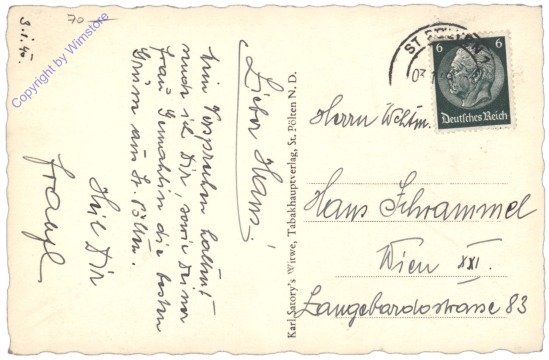 3.1.40.
70
Copyright by Wimstore
Lieber Hans!
Mein Versprechen haltend
sende ich Dir, sowie Deiner
Frau Gemahlin die besten
Grüsse aus St. Pölten.
Heil Dir
Franzl
Karl Satory's Witwe, Tabakhauptverlag, St. Pölten N. D.
ST. PÖLTEN 1
6 6
Deutsches Reich
Herrn
Hans Schrammel
Wien XXI.
Langobardostrasse 83